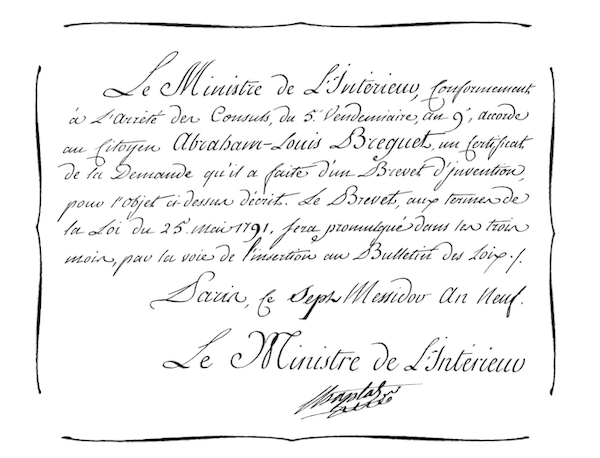 Le Ministre de L'Intérieur, Conformement
à L'Arrêté des Consuls, du 5e Vendemiaire, an 9e, accorde
au Citoyen Abraham-Louis Breguet, un Certificat
de la Demande qu'il a faite d'un Brevet d'invention
pour l'objet ci-dessus décrit. Le Brevet, aux termes de
la Loi du 25 mai 1791, sera promulgué dans les trois
mois, par la voie de l'insertion au Bulletin des Loix./.
Paris, ce Sept Messidor An Neuf.
Le Ministre de L'Intérieur